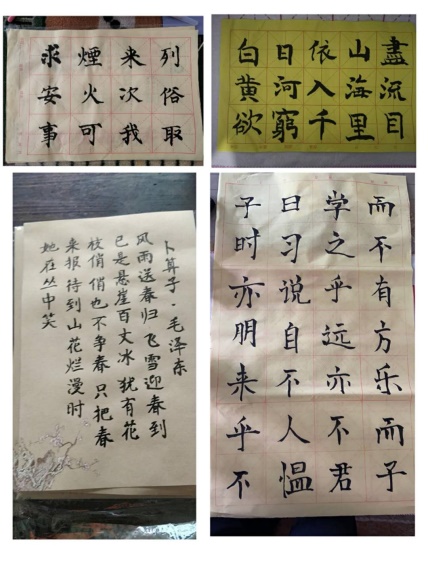 求煙来列
安火次俗
事可我取
白日依山盡
黄河入海流
欲窮千里目
卜算子·毛泽东
风雨送春归 飞雪迎春到
已是悬崖百丈冰 犹有花
枝俏俏也不争春 只把春
来报待到山花烂漫时
她在丛中笑
子曰学而
时习之不
亦说乎有
朋自远方
来不亦乐
乎人不而
不愠君子